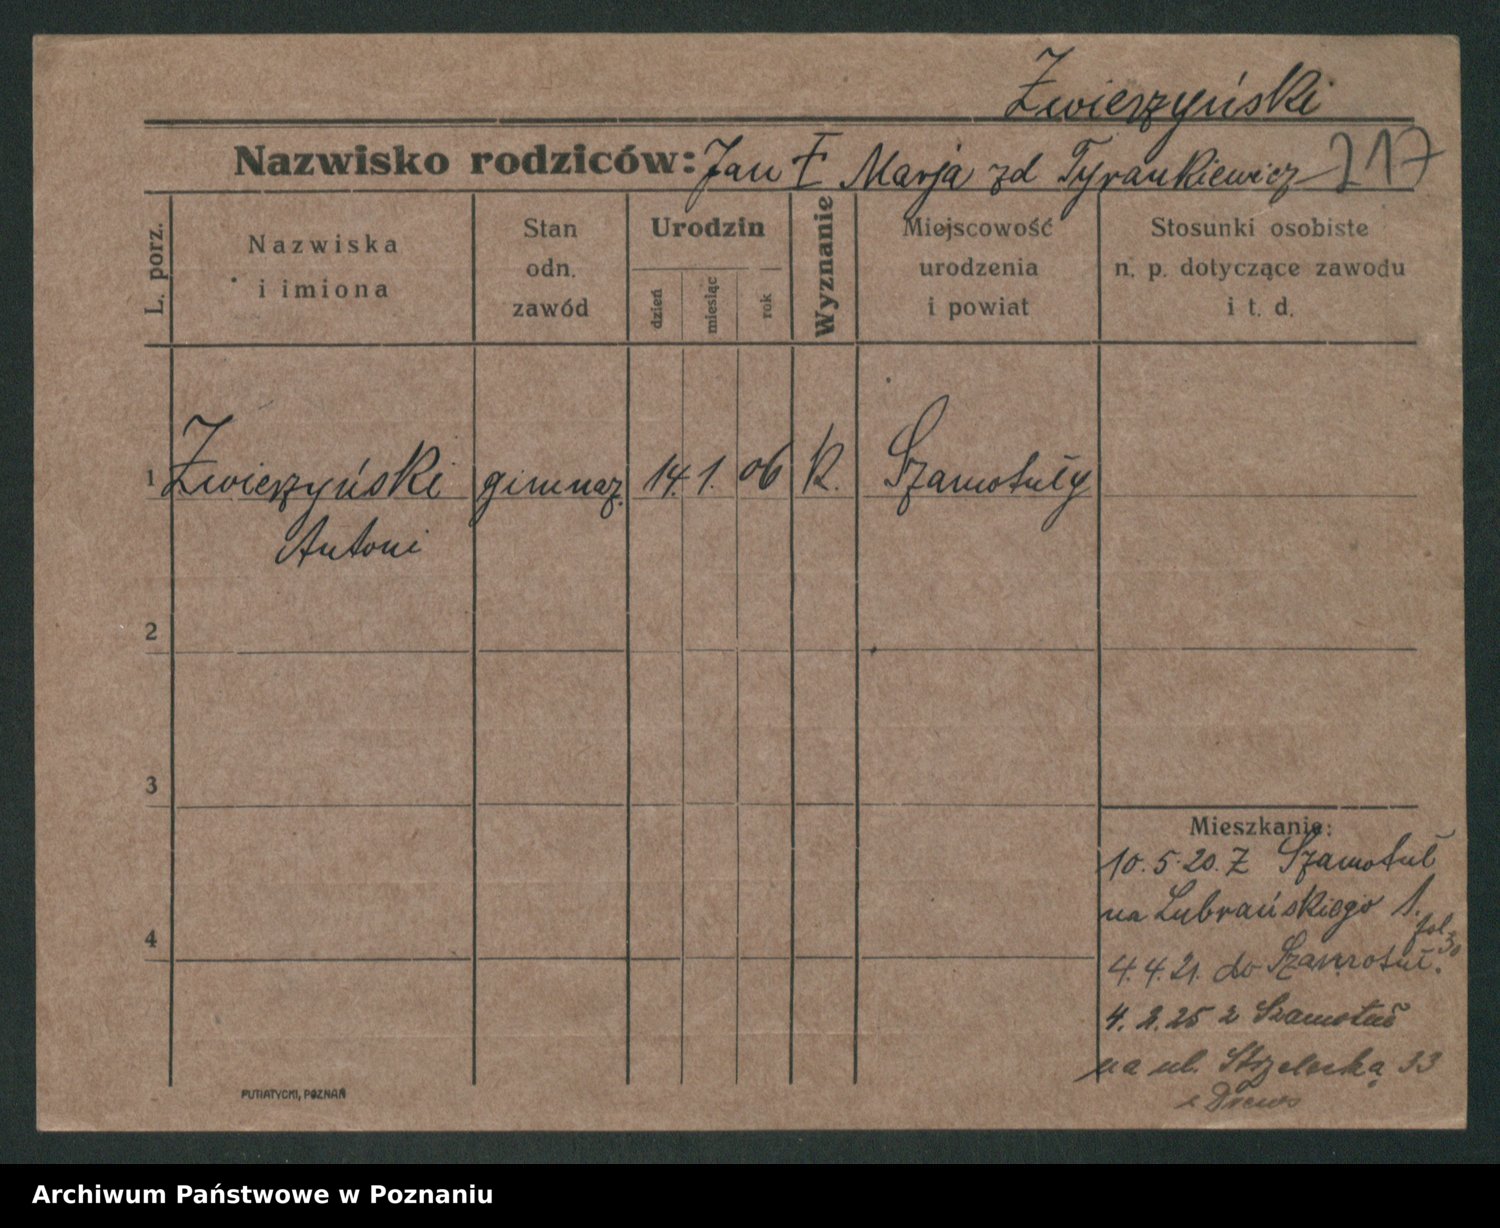 Zwierzyński
Nazwisko rodziców: Jan I Marja zd Tyrankiewicz 217
L. porz.
Nazwiska
i imiona
Stan
odn.
zawód
Urodzin
dzień
miesiąc
rok
Wyznanie
Miejscowość
urodzenia
i powiat
Stosunki osobiste
n. p. dotyczące zawodu
i t. d.
1 Zwierzyński gimnaz. 14. 1. 06 k. Szamotuły
Antoni
2
3
4
Mieszkanie:
10.5.20. Z Szamotuł
na Lubrańskiego 1.
fol 30
4.4.21. do Szamotuł.
4.2.25 z Szamotuł
na ul. Strzelecką 33
Drews
PUTIATYCKI, POZNAŃ
Archiwum Państwowe w Poznaniu